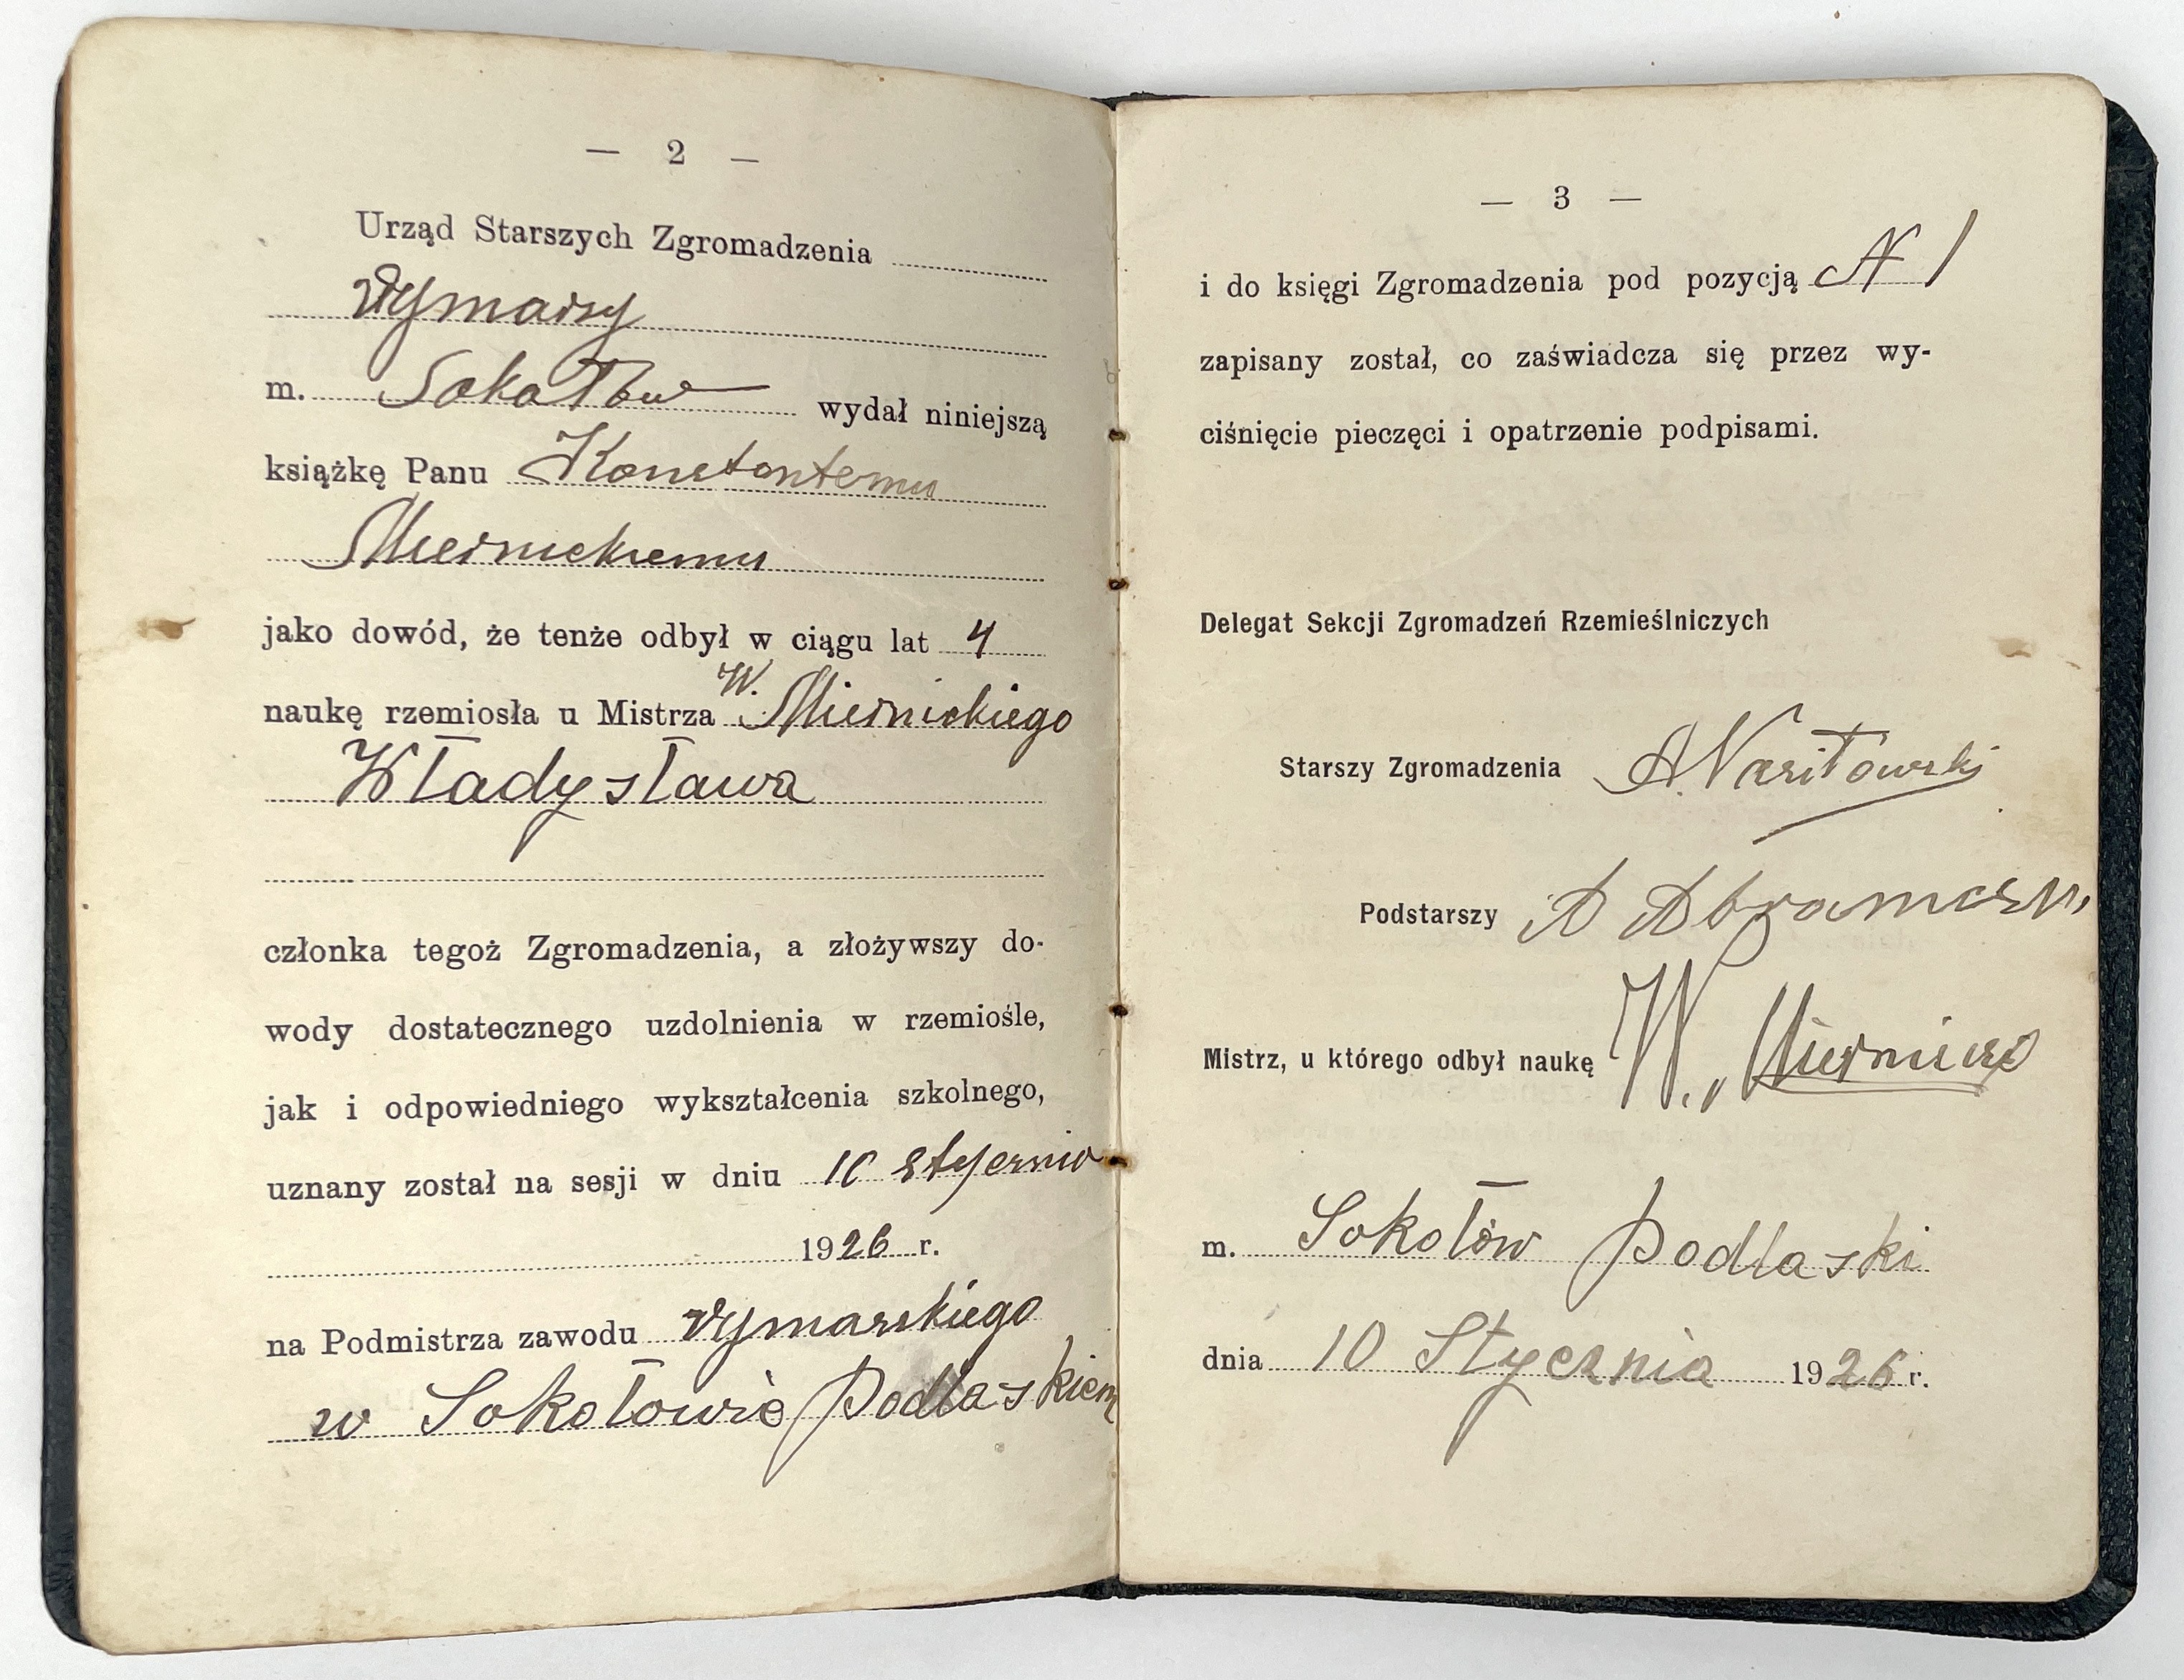 — 2 —
Urząd Starszych Zgromadzenia
Rymarzy
m. Sokołów wydał niniejszą
książkę Panu Konstantemu
Miernickiemu
jako dowód, że tenże odbył w ciągu lat 4
W.
naukę rzemiosła u Mistrza Miernickiego
Władysława
członka tegoż Zgromadzenia, a złożywszy do-
wody dostatecznego uzdolnienia w rzemiośle,
jak i odpowiedniego wykształcenia szkolnego,
uznany został na sesji w dniu 10 stycznia
1926 r.
na Podmistrza zawodu rymarskiego
w Sokołowie Podlaskiem
— 3 —
i do księgi Zgromadzenia pod pozycją N 1
zapisany został, co zaświadcza się przez wy-
ciśnięcie pieczęci i opatrzenie podpisami.
Delegat Sekcji Zgromadzeń Rzemieślniczych
Starszy Zgromadzenia A.
Podstarszy A
Mistrz, u którego odbył naukę W. Miernicki
m. Sokołów Podlaski
dnia 10 Stycznia 1926 r.